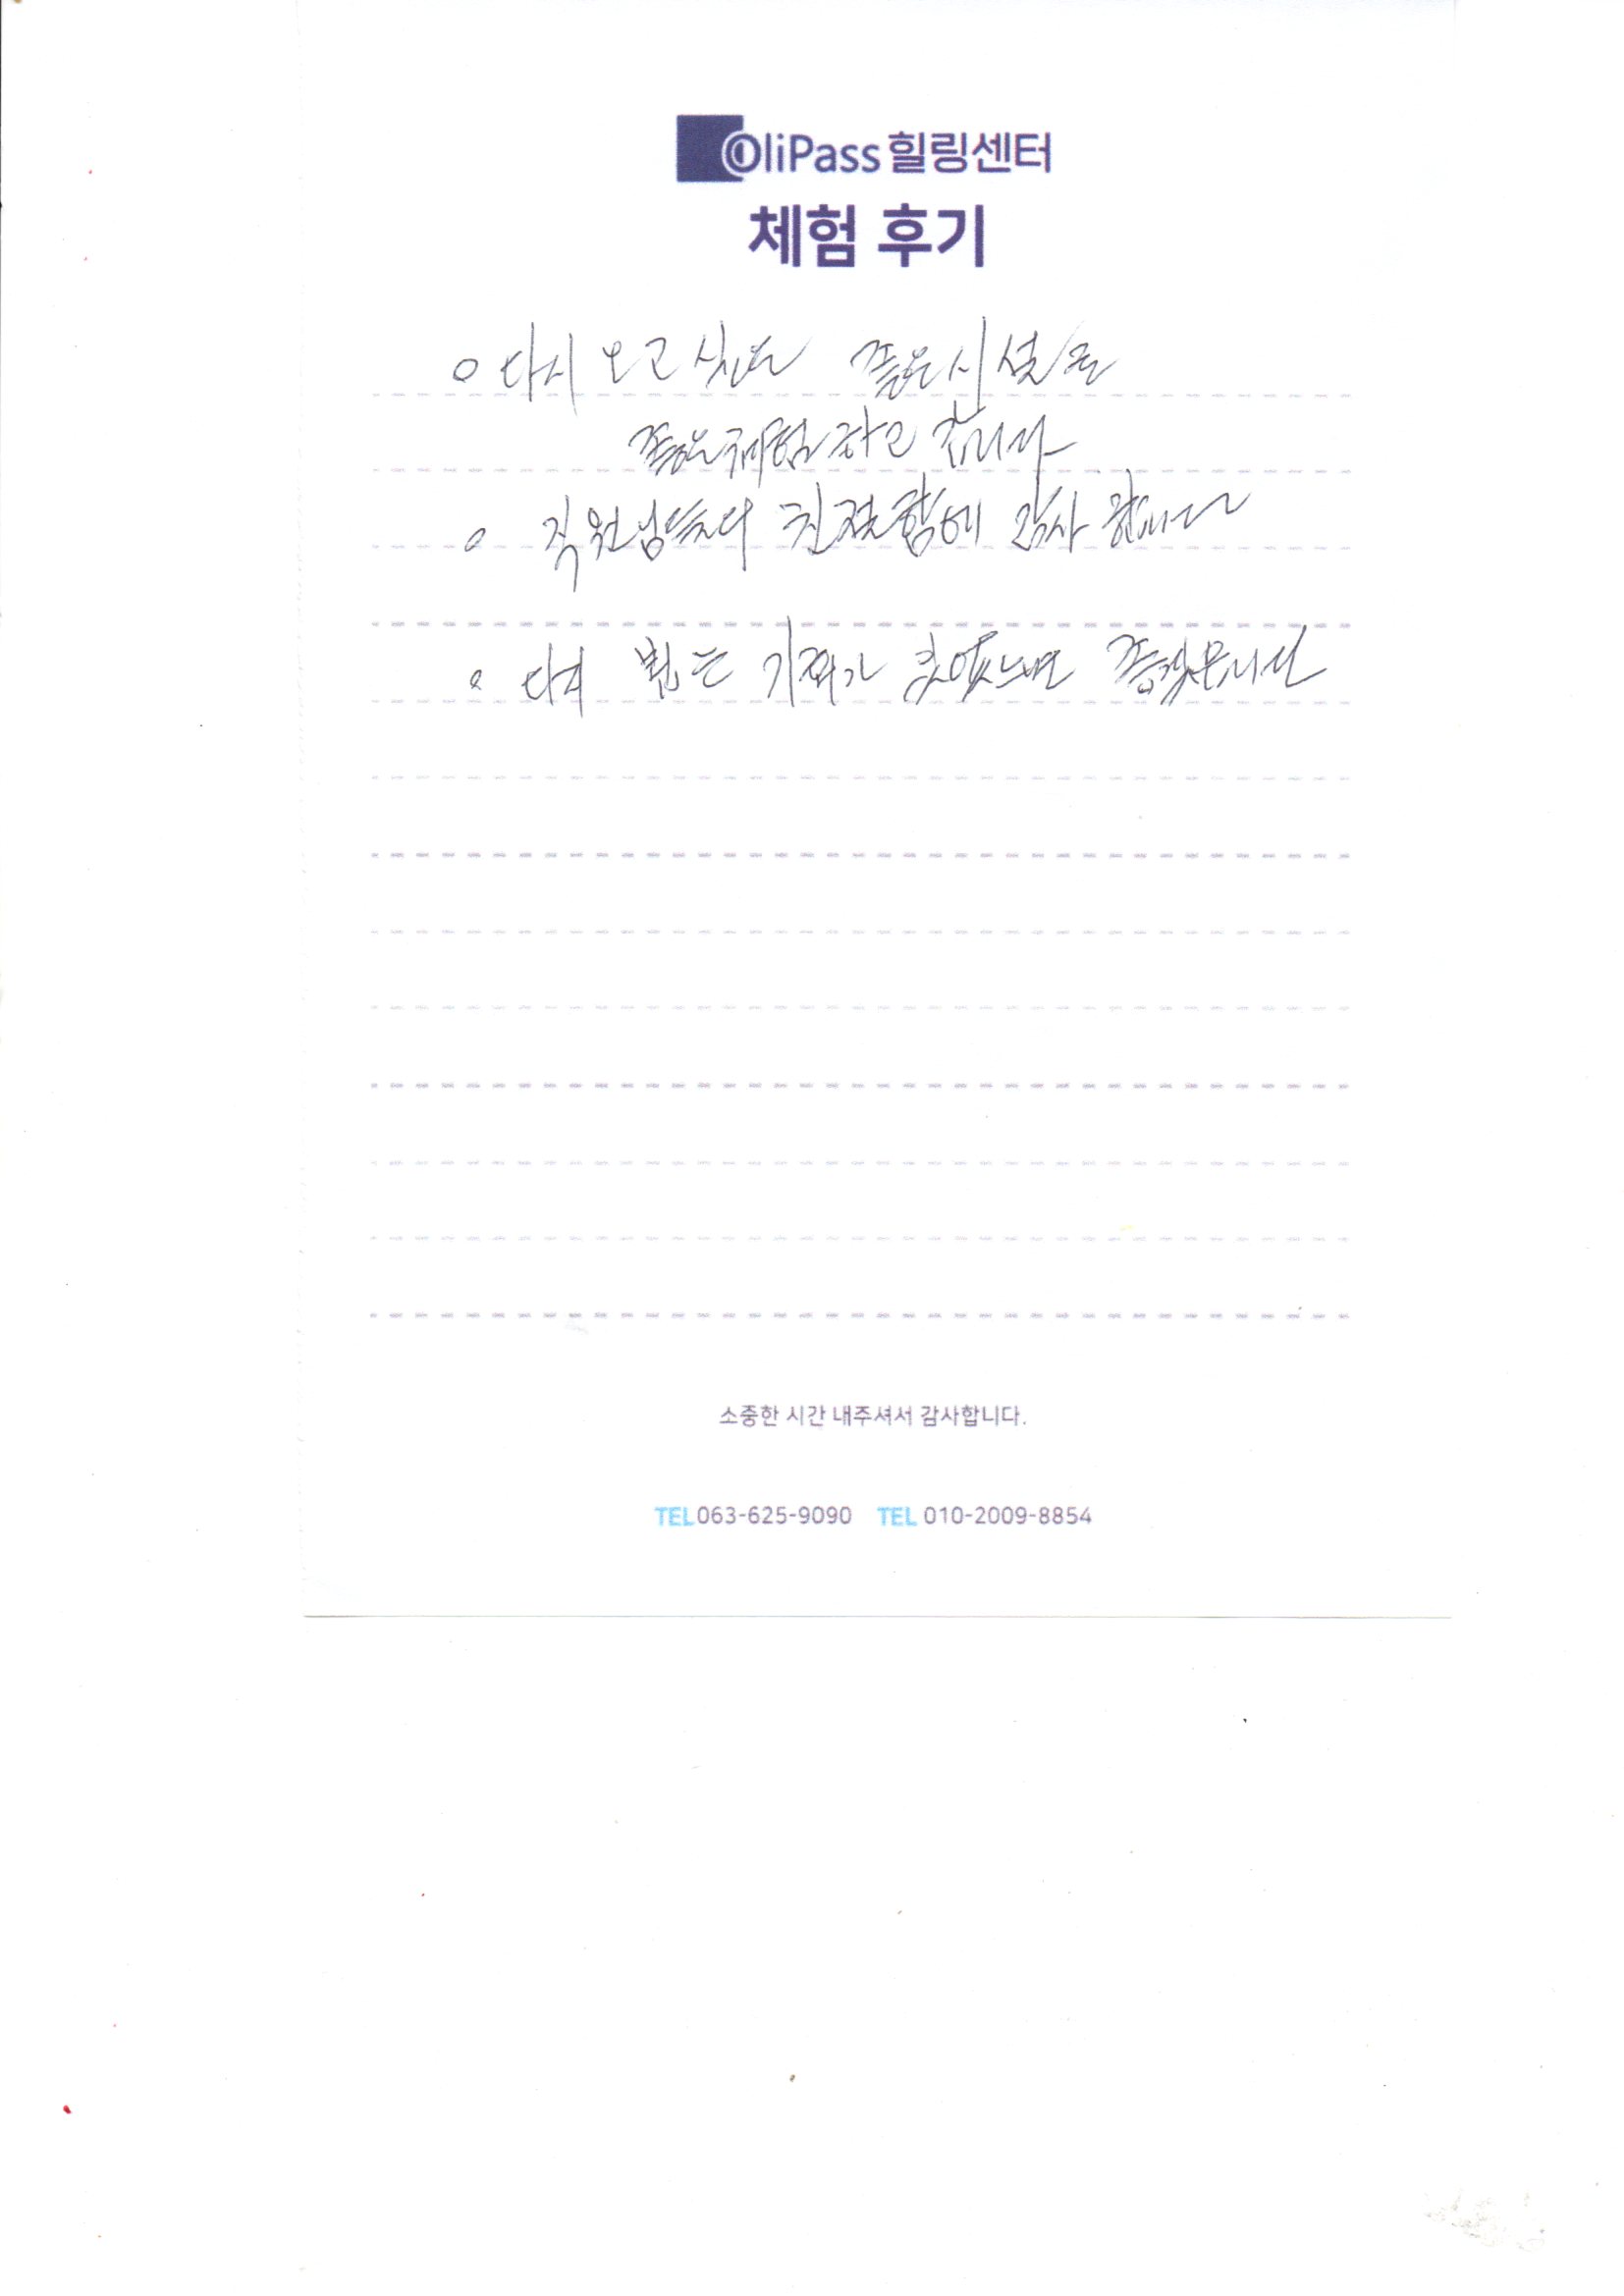 OliPass 힐링센터
체험 후기
○ 다시 오고 싶은 좋은시설을
좋은체험 하고 갑니다
○ 직원님들의 친절함에 감사 합니다
○ 다시 뵙는 기회가 있었으면 좋겠읍니다
소중한 시간 내주셔서 감사합니다.
TEL 063-625-9090 TEL 010-2009-8854